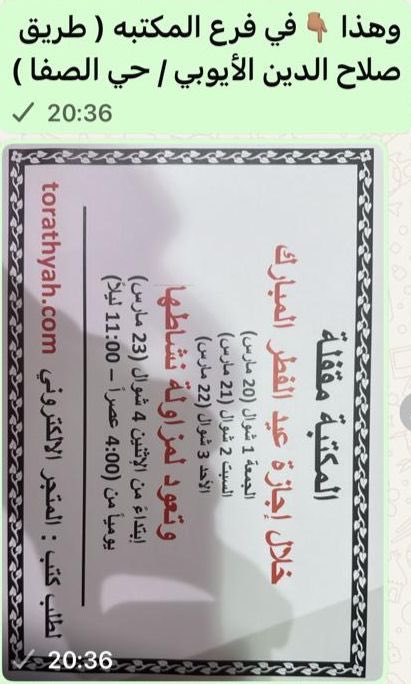 وهذا 👇🏽 في فرع المكتبه ( طريق
صلاح الدين الأيوبي / حي الصفا )
20:36
المكتبة مقفلة
خلال إجازة عيد الفطر المبارك
الجمعة 1 شوال (20 مارس)
السبت 2 شوال (21 مارس)
الأحد 3 شوال (22 مارس)
وتعود لمزاولة نشاطها
ابتداءً من الاثنين 4 شوال (23 مارس)
يومياً من (4:00 عصراً – 11:00 ليلاً)
لطلب كتب : المتجر الالكتروني torathyah.com
20:36